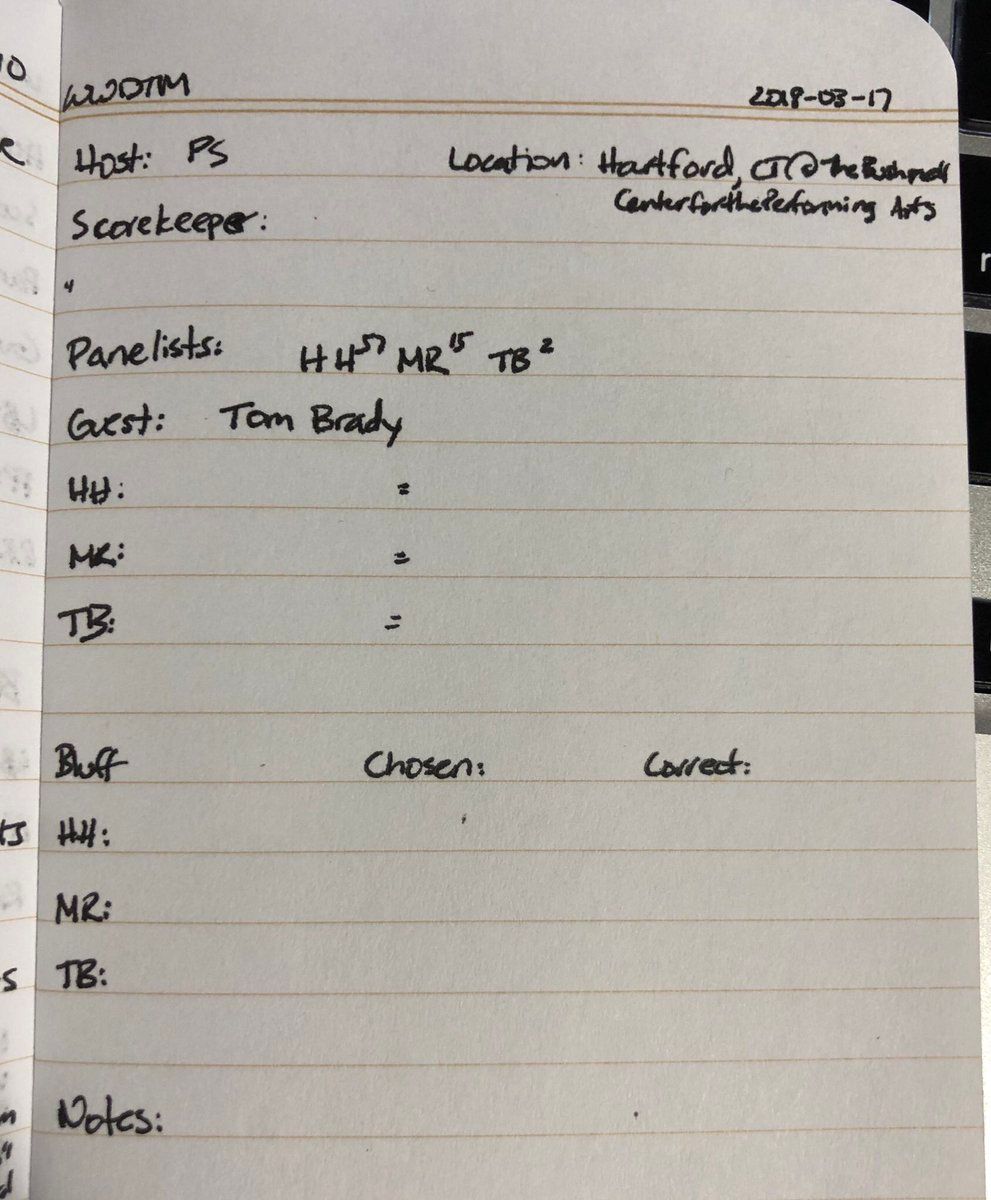 WWDTM 2018-03-17
Host: PS Location: Hartford, CT @ The Bushnell
Center for the Performing Arts
Scorekeeper:
"
Panelists: HH57 MR15 TB2
Guest: Tom Brady
HH: =
MR: =
TB: =
Bluff Chosen: Correct:
HH:
MR:
TB:
Notes: